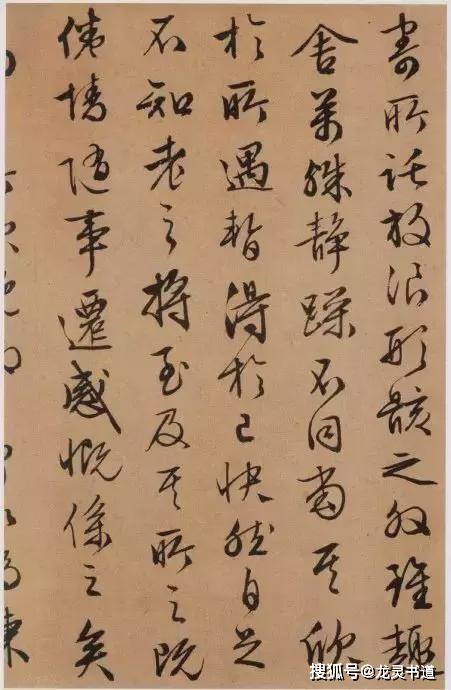 寄所託放浪形骸之外雖趣
舍萬殊静躁不同當其欣
於所遇暫得於己快然自足
不知老之將至及其所之既
倦情隨事遷感慨係之矣
搜狐号@龙灵书道